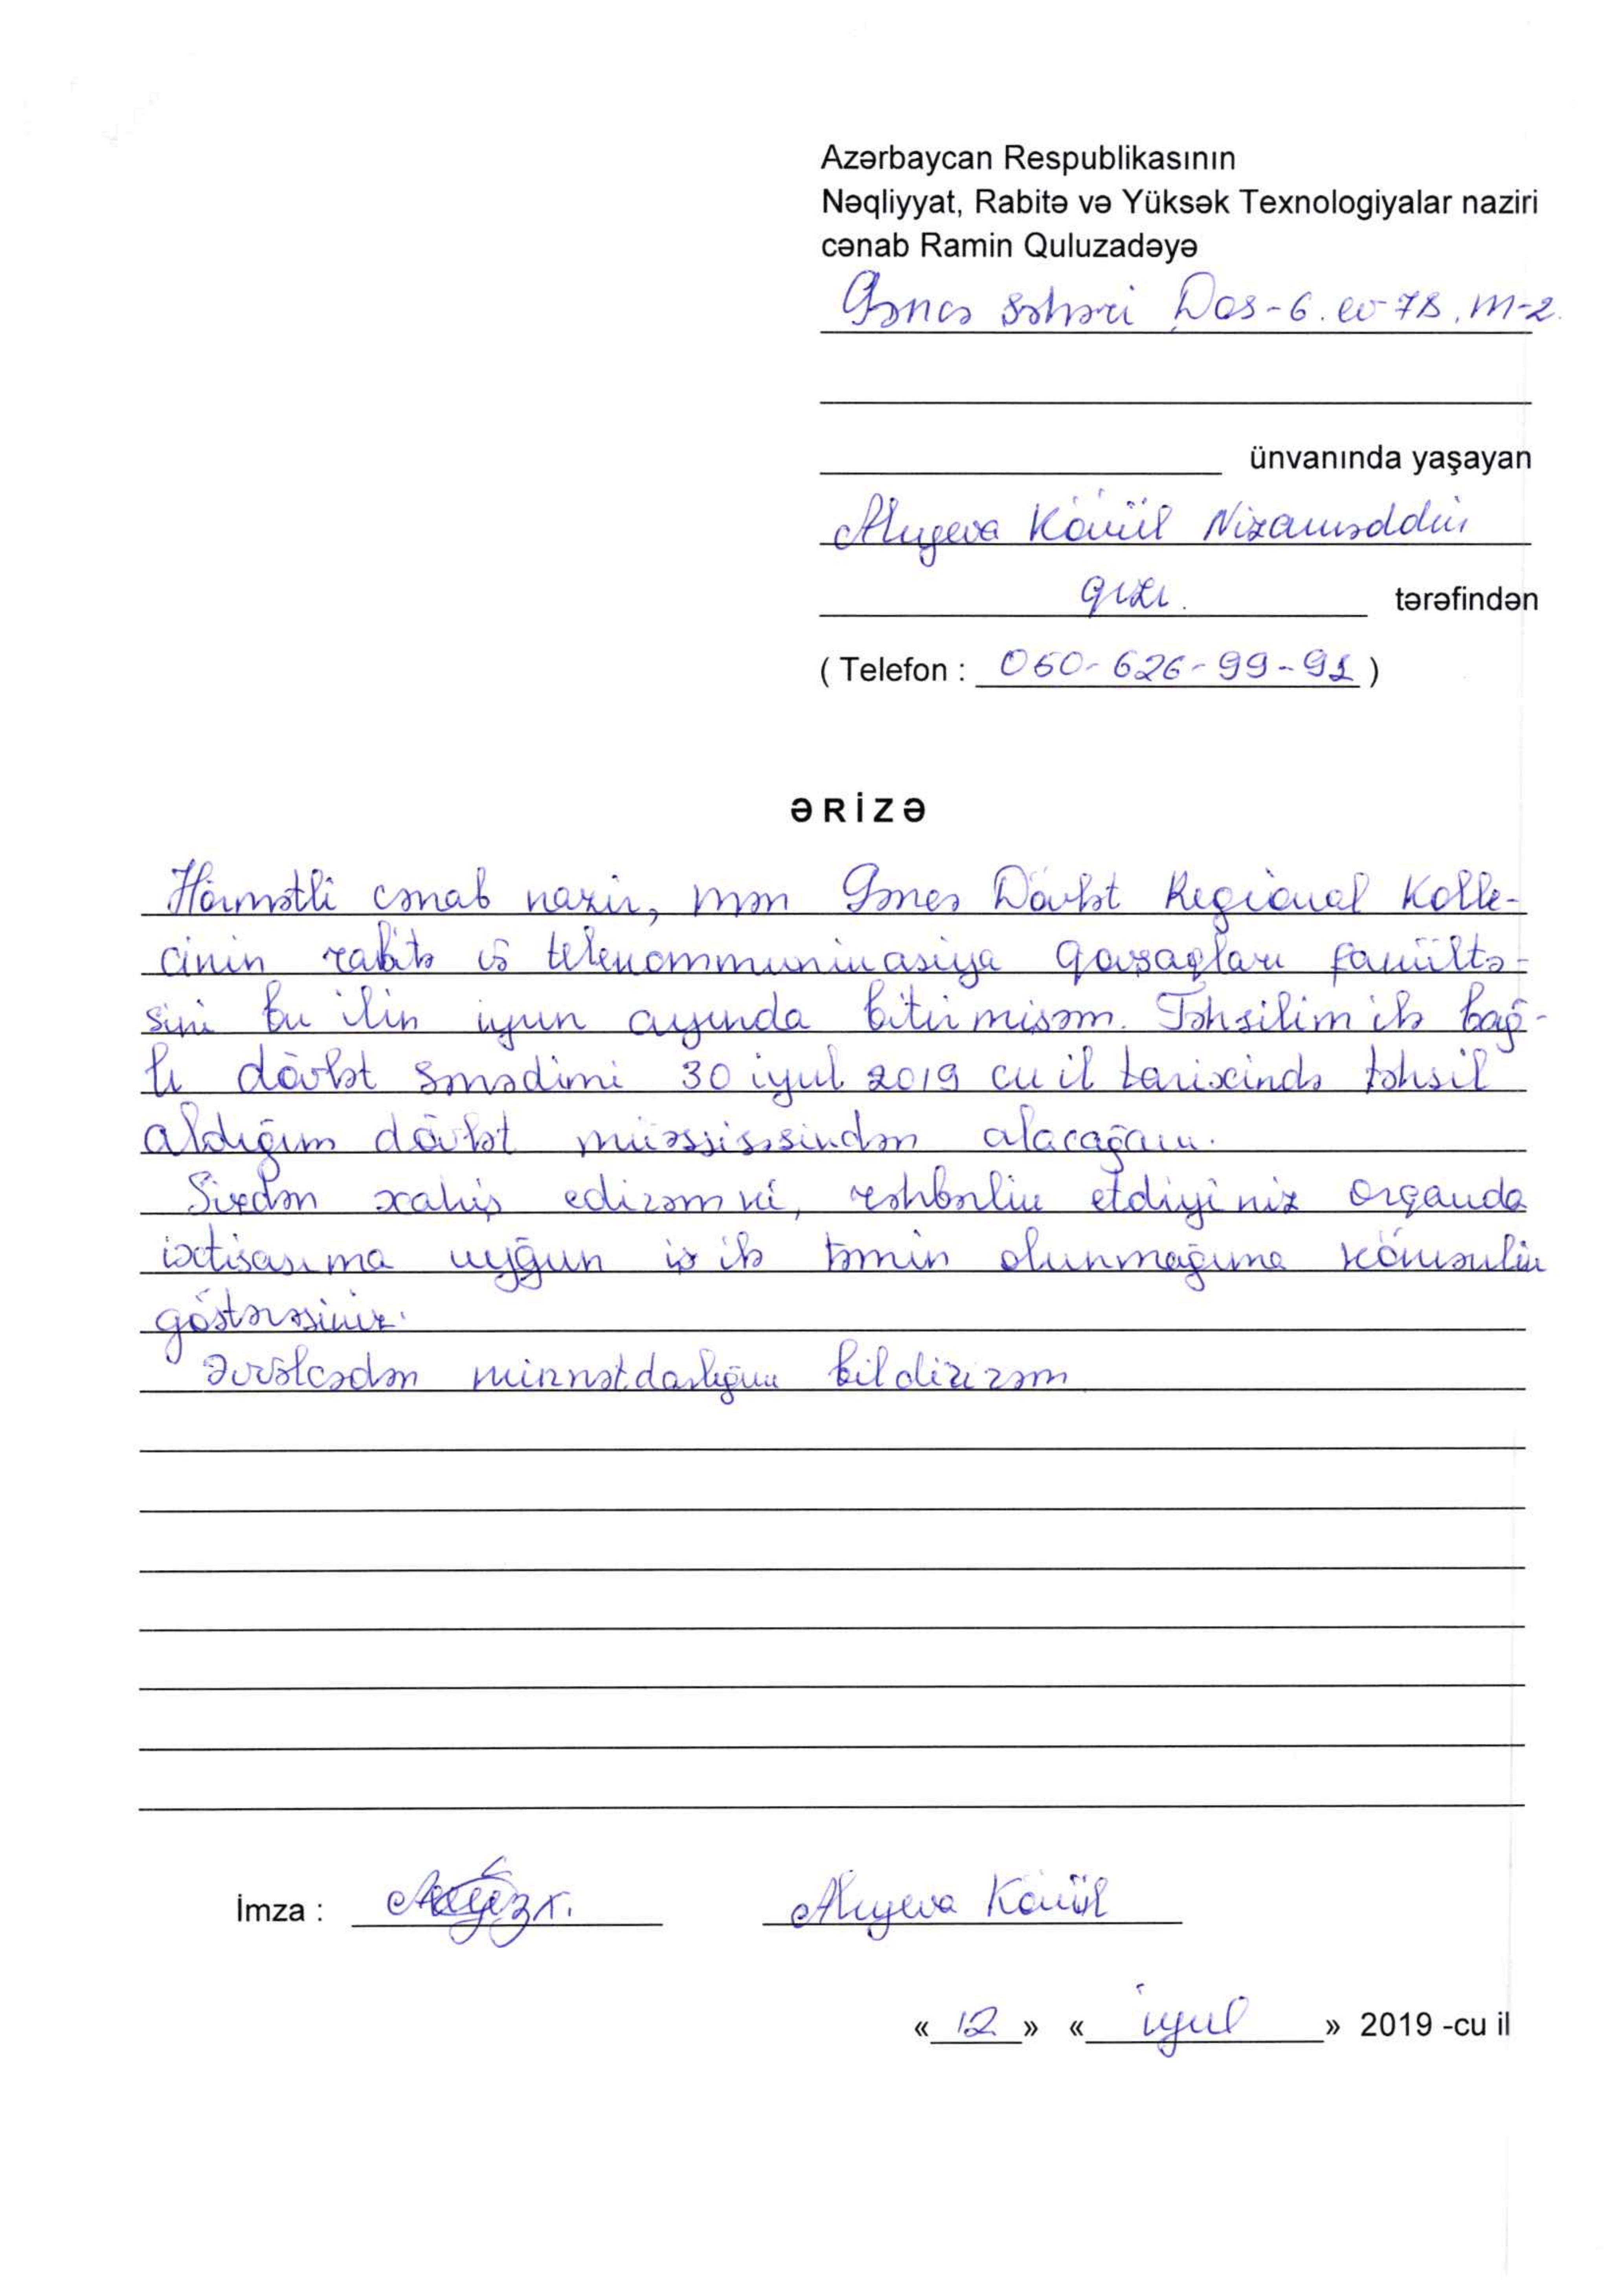 Azərbaycan Respublikasının
Nəqliyyat, Rabitə və Yüksək Texnologiyalar naziri
cənab Ramin Quluzadəyə
Gəncə şəhəri Dos-6. ev-7B, m-2.
ünvanında yaşayan
Alıyeva Könül Nizaməddin
qızı. tərəfindən
( Telefon : 050-626-99-91 )
ƏRİZƏ
Hörmətli cənab nazir, mən Gəncə Dövlət Regional Kolle-
cinin rabitə və telekommunikasiya qovşaqları fakültə-
sini bu ilin iyun ayında bitirmişəm. Təhsilim ilə bağ-
lı dövlət sənədimi 30 iyul 2019 cu il tarixində təhsil
aldığım dövlət müəssisəsindən alacağam.
Sizdən xahiş edirəm ki, rəhbərlik etdiyiniz orqanda
ixtisasıma uyğun iş ilə təmin olunmağıma köməklik
göstərəsiniz.
Əvvəlcədən minnətdarlığımı bildirirəm
İmza : Alıyeva Könül
« 12 » « iyul » 2019 -cu il